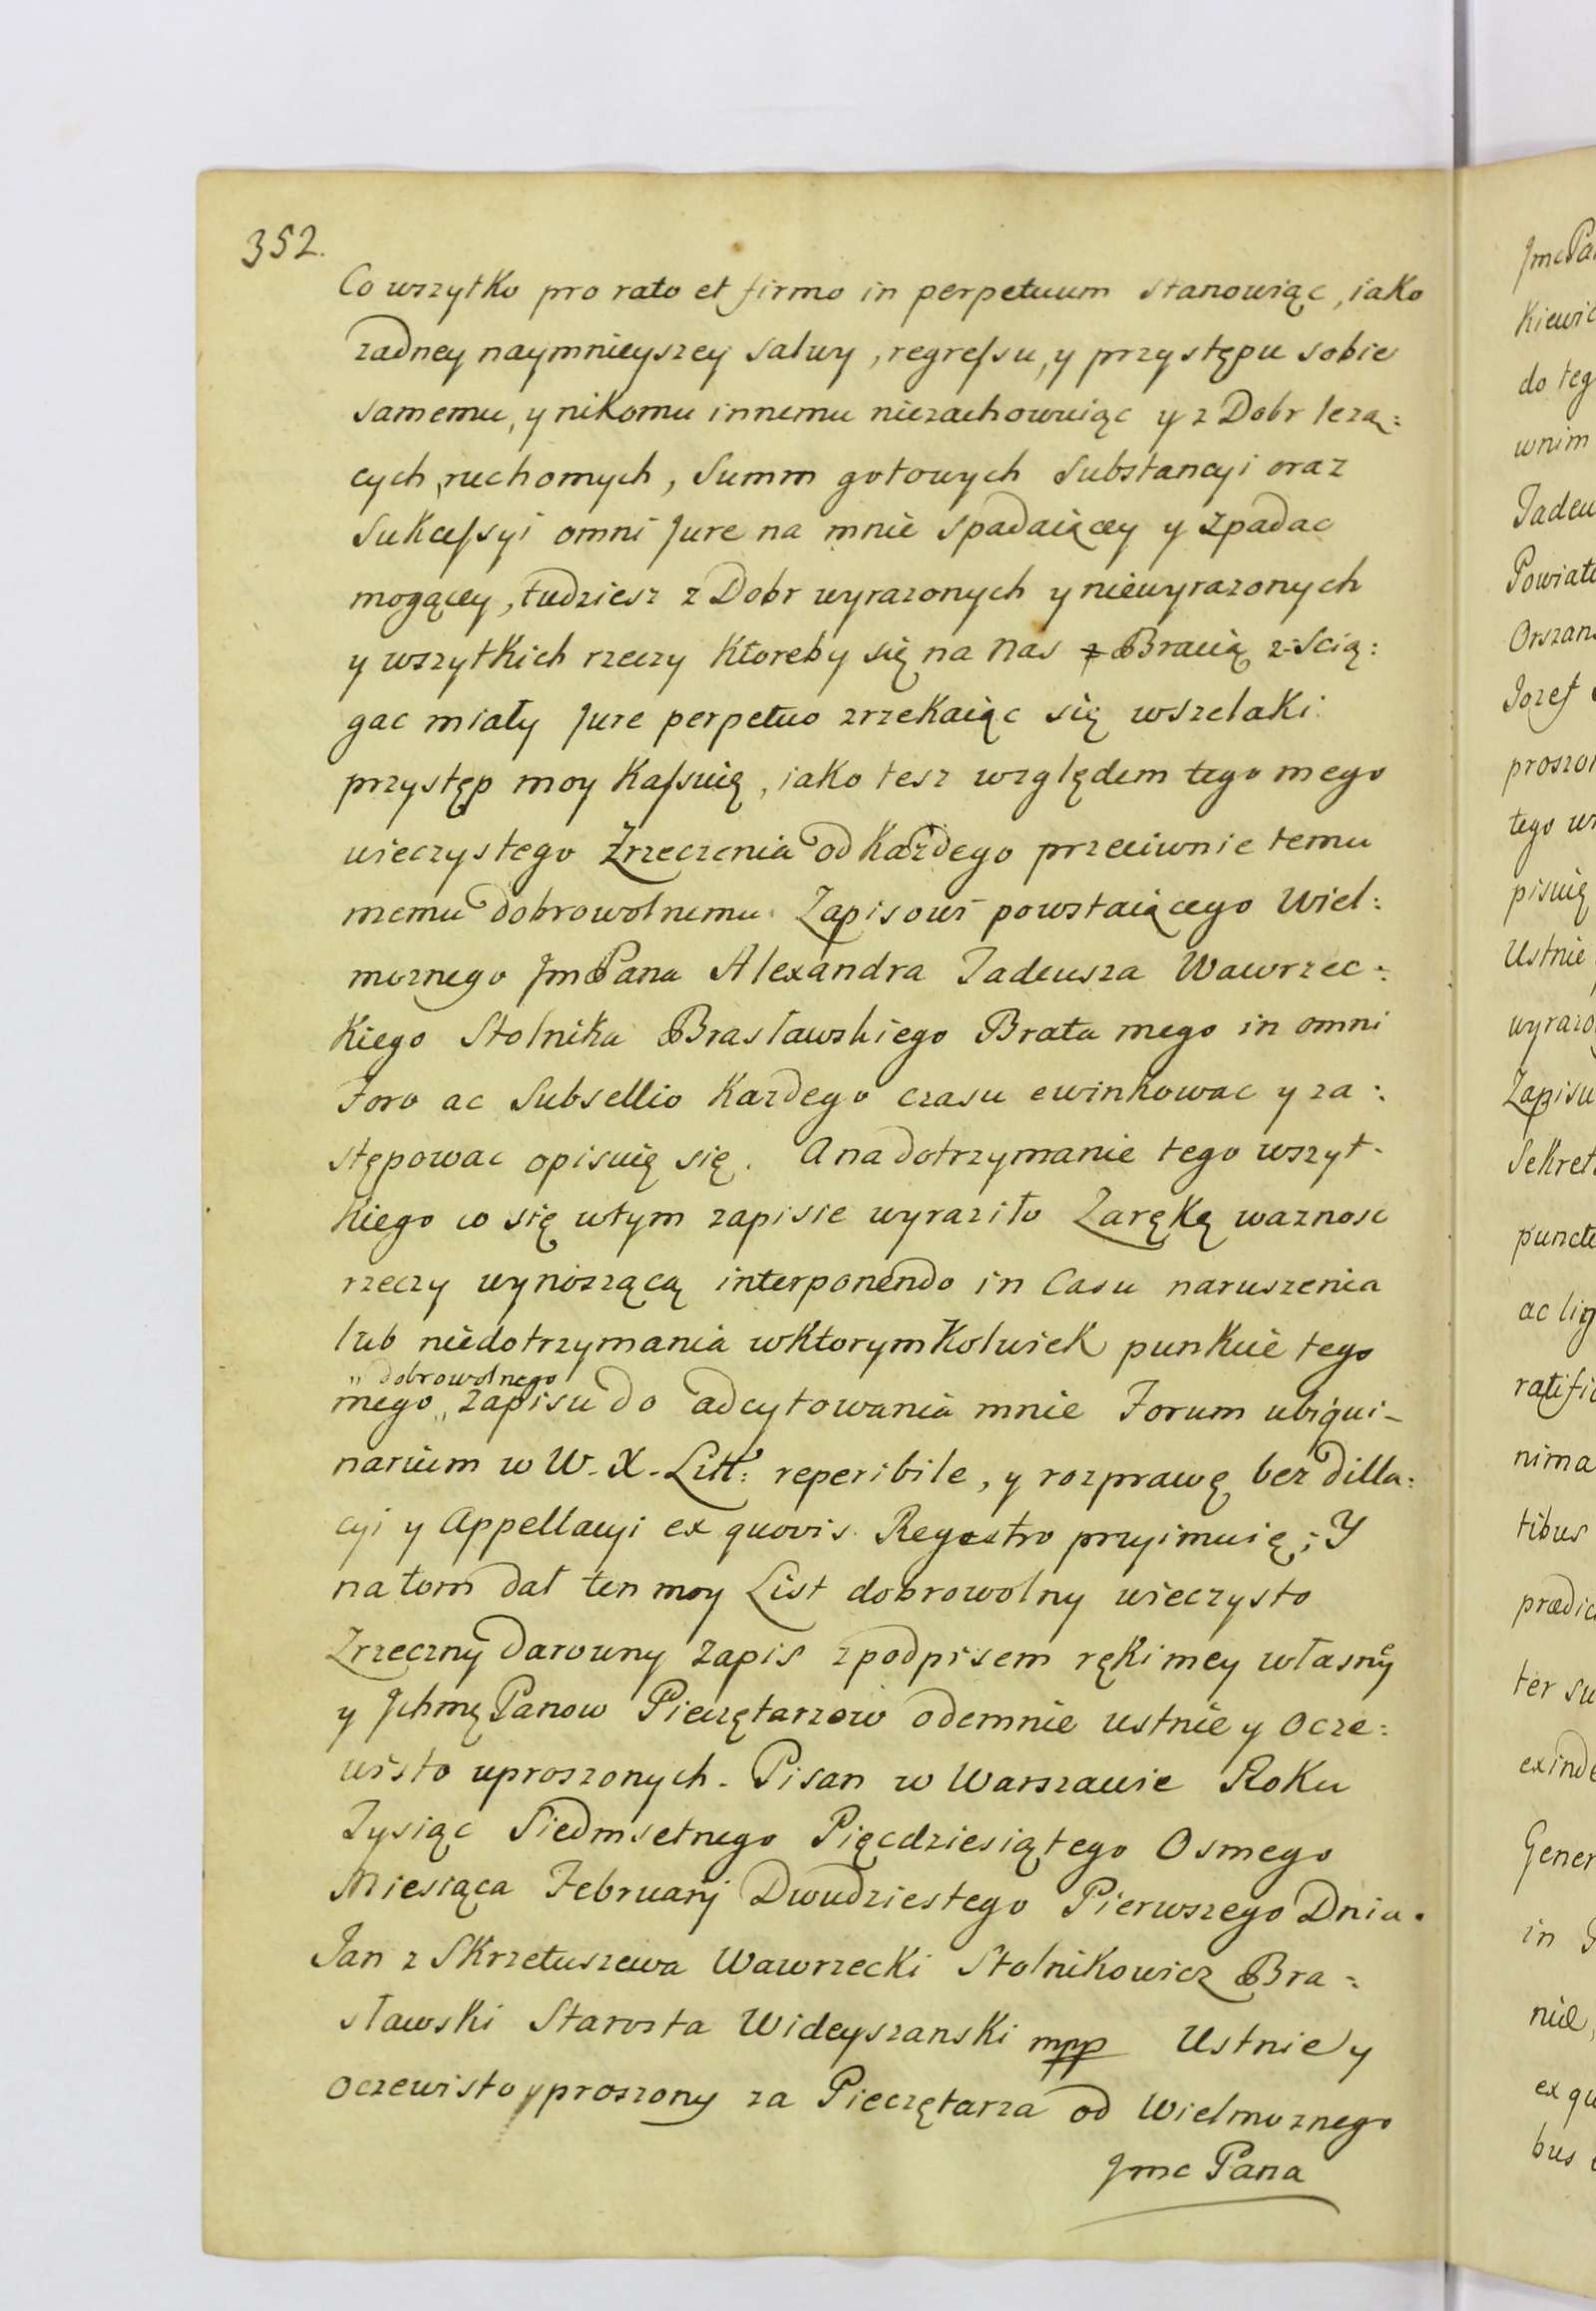 352.
Co wszytko pro rato et firmo in perpetuum stanowiąc, iako
zadney naymnieyszey salwy, regreſsu, y przystępu sobie
samemu, y nikomu innemu niezachowuiąc y z Dobr leżą:
cych, ruchomych, Summ gotowych Substancyi oraz
Sukceſsyi omni Jure na mnie spadaiącey y zpadac
mogącey, tudziesz z Dobr wyrazonych y niewyrazonych
y wszytkich rzeczy ktoreby się na nas z Bracią z-Scią:
gac miały Jure perpetuo zrzekaiąc się wszelaki
przystęp moy Kaſsuię, iako tesz względem tego mego
wieczystego Zrzeczenia od Każdego przeciwnie temu
memu dobrowolnemu Zapisowi powstaiącego Wiel:
moznego JmPana Alexandra Tadeusza Wawrzec:
kiego Stolnika Brasławskiego Brata mego in omni
Foro ac Subsellio Kazdego czasu ewinkowac y za:
stępowac opisuię się. A na dotrzymanie tego wszyt-
kiego co się wtym zapisie wyraziło Zarękę waznosc
rzeczy wynoszącą interponendo in Casu naruszenia
lub niedotrzymania wktorymkolwiek punkcie tego
" dobrowolnego
mego " zapisu do adcytowania mnie Forum ubiqui-
narium w W. X. Litt: reperibile, y rozprawę bez dilla:
cyi y Appellacyi ex quovis Regestro przyimuię; Y
na tom dał ten moy List dobrowolny wieczysto
Zrzeczny darowny zapis zpodpisem ręki mey własney
y Jchmę Panow Pieczętarzow odemnie ustnie y Ocze:
wisto uproszonych. Pisan w Warszawie Roku
Tysiąc Siedmsetnego Pięcdziesiątego Osmego
Miesiąca Februarij Dwudziestego Pierwszego Dnia.
Jan z Skrzetuszewa Wawrzecki Stolnikowicz Bra:
sławski Starosta Wideyszanski mpp Ustnie y
Oczewisto uproszony za Pieczętarza od Wielmoznego
Jmc Pana